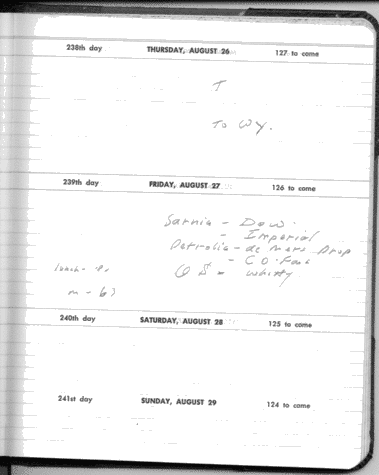 238th day THURSDAY, AUGUST 26 127 to come
T
To Wy.
239th day FRIDAY, AUGUST 27 126 to come
Sarnia - Dow.
- Imperial
Petrolia - de Mers Drop
- C O.
lunch -
m - 67
240th day SATURDAY, AUGUST 28 125 to come
241st day SUNDAY, AUGUST 29 124 to come